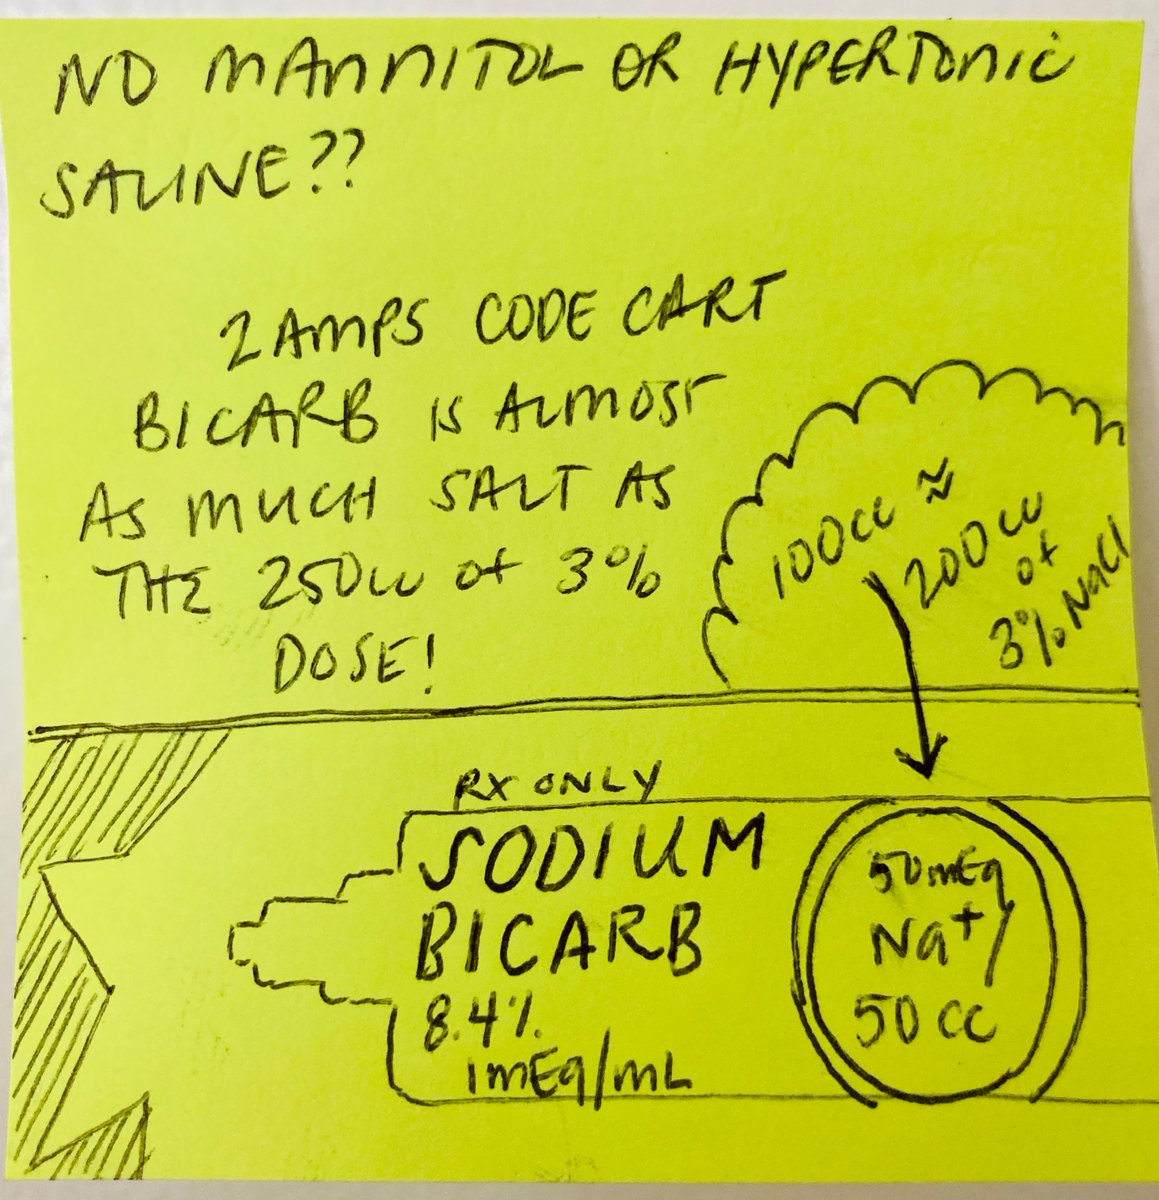 NO MANNITOL OR HYPERTONIC
SALINE??
2 AMPS CODE CART
BICARB IS ALMOST
AS MUCH SALT AS
THE 250cc of 3%
DOSE!
100cc ≈
200cc
of
3% NaCl
RX ONLY
SODIUM
BICARB
8.4%
1mEq/mL
50mEq
Na+/
50cc